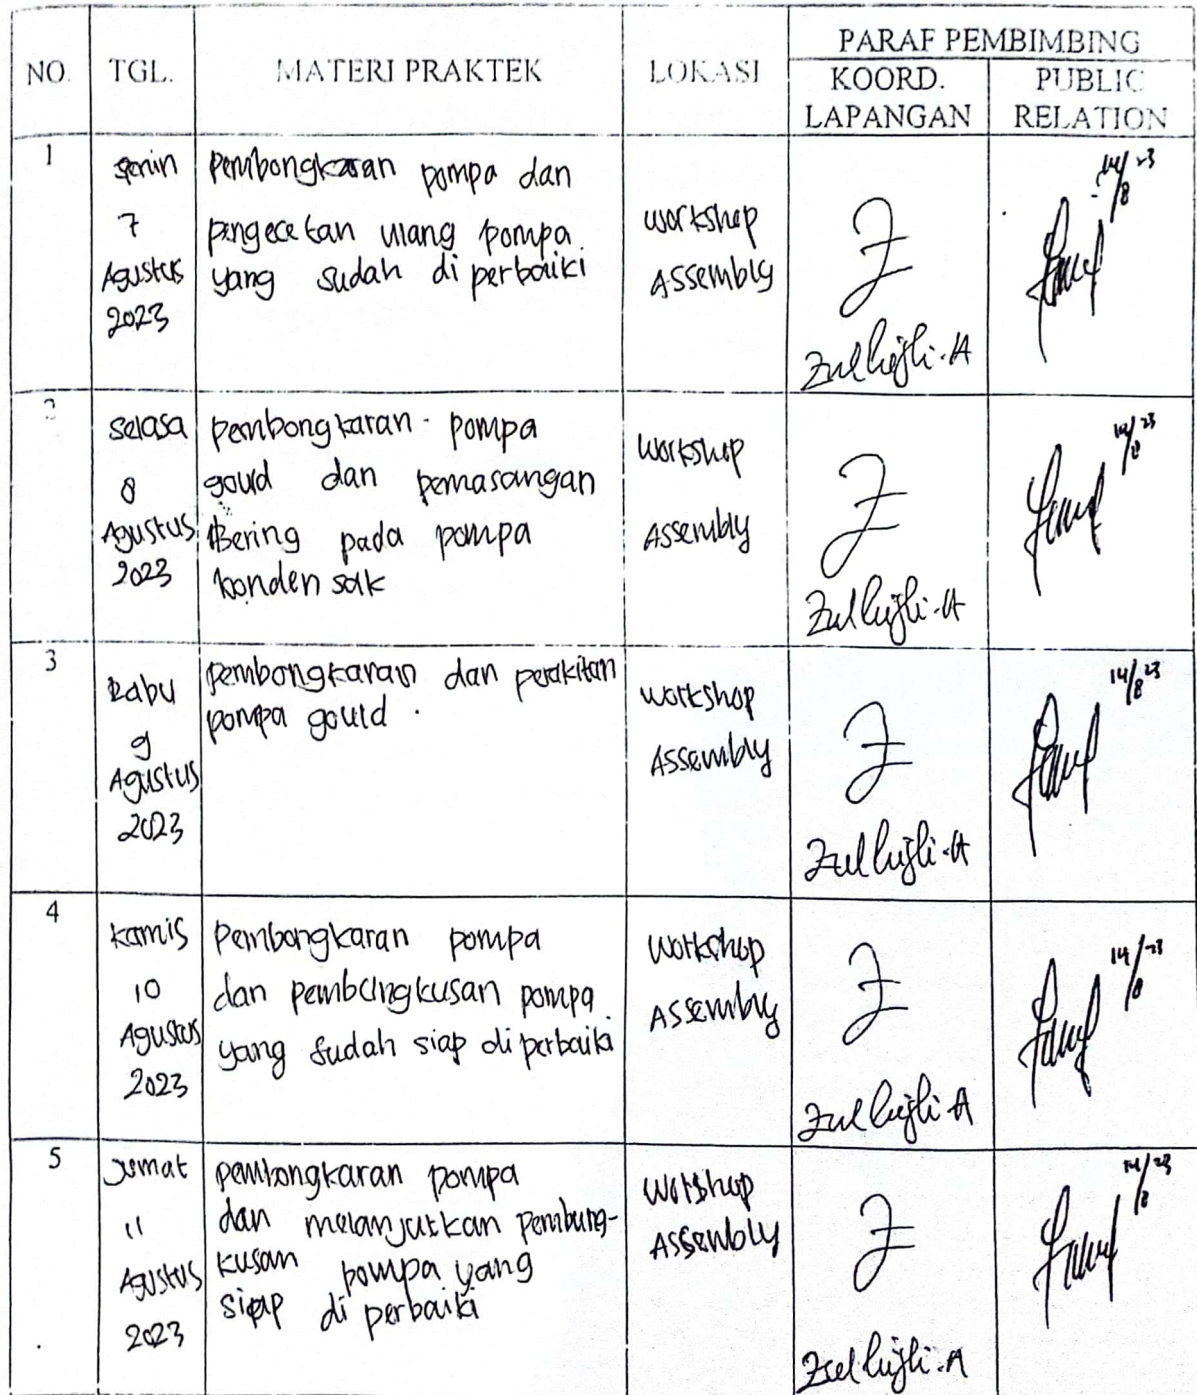 NO. TGL. MATERI PRAKTEK LOKASI PARAF PEMBIMBING
KOORD. LAPANGAN PUBLIC RELATION
1
Senin
7
Agustus
2023
Pembongkaran pompa dan
pengecetan ulang pompa
yang sudah di perbaiki
workshop
Assembly
Zulhijli.A
14/8 23
2
Selasa
8
Agustus
2023
pembongkaran pompa
gourd dan pemasangan
Bering pada pompa
konden sak
Workshop
Assembly
Zulhijli.A
14/8 23
3
Rabu
9
Agustus
2023
pembongkaran dan perakitan
pompa gould.
Workshop
Assembly
Zulhijli.A
14/8 23
4
Kamis
10
Agustus
2023
Pembongkaran pompa
dan pembungkusan pompa
yang sudah siap di perbaiki
Workshop
Assembly
Zulhijli.A
14/8 23
5
Jumat
11
Agustus
2023
pembongkaran pompa
dan melanjutkan pembung-
kusan pompa yang
siap di perbaiki
Workshop
Assembly
Zulhijli.A
14/8 23